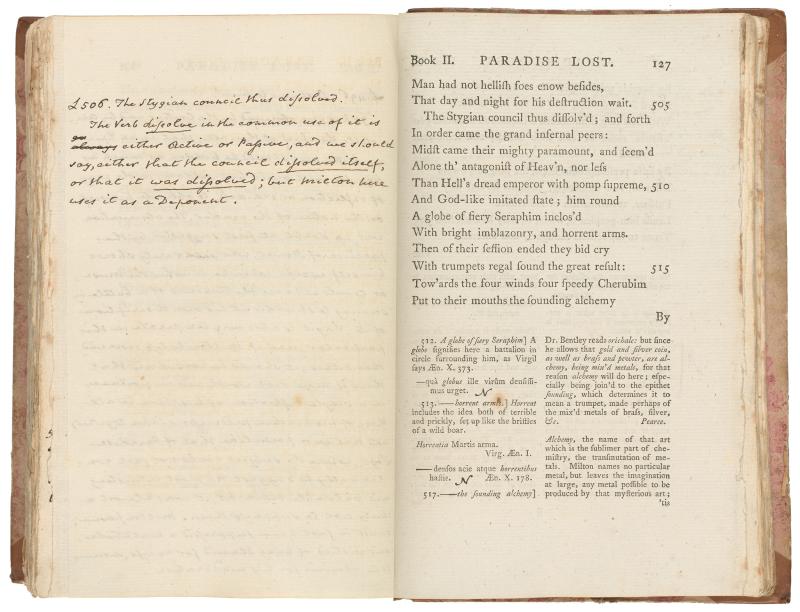 L506. The Stygian council thus dissolved.
The Verb dissolve in the common use of it is
always either Active or Passive, and we should
say, either that the council dissolved itself,
or that it was dissolved; but Milton here
uses it as a Deponent.
Book II. PARADISE LOST. 127
Man had not helliſh foes enow beſides,
That day and night for his deſtruction wait. 505
The Stygian council thus diſſolv'd; and forth
In order came the grand infernal peers:
Midſt came their mighty paramount, and ſeem'd
Alone th' antagoniſt of Heav'n, nor leſs
Than Hell's dread emperor with pomp ſupreme, 510
And God-like imitated ſtate; him round
A globe of fiery Seraphim inclos'd
With bright imblazonry, and horrent arms.
Then of their ſeſſion ended they bid cry
With trumpets regal ſound the great reſult: 515
Tow'ards the four winds four ſpeedy Cherubim
Put to their mouths the ſounding alchemy
By
512. A globe of fiery Seraphim] A
globe ſignifies here a battalion in
circle ſurrounding him, as Virgil
ſays Æn. X. 373.
—quà globus ille virûm denſiſſi-
mus urget. N
513. —horrent arms.] Horrent
includes the idea both of terrible
and prickly, ſet up like the briſtles
of a wild boar.
Horrentia Martis arma.
Virg. Æn. I.
—denſos acie atque horrentibus
haſtis. N Æn. X. 178.
517. —the ſounding alchemy]
Dr. Bentley reads orichalc: but ſince
he allows that gold and ſilver coin,
as well as braſs and pewter, are al-
chemy, being mix'd metals, for that
reaſon alchemy will do here; eſpe-
cially being join'd to the epithet
ſounding, which determines it to
mean a trumpet, made perhaps of
the mix'd metals of braſs, ſilver,
&c. Pearce.
Alchemy, the name of that art
which is the ſublimer part of che-
miſtry, the tranſmutation of me-
tals. Milton names no particular
metal, but leaves the imagination
at large, any metal poſſible to be
produced by that myſterious art;
'tis